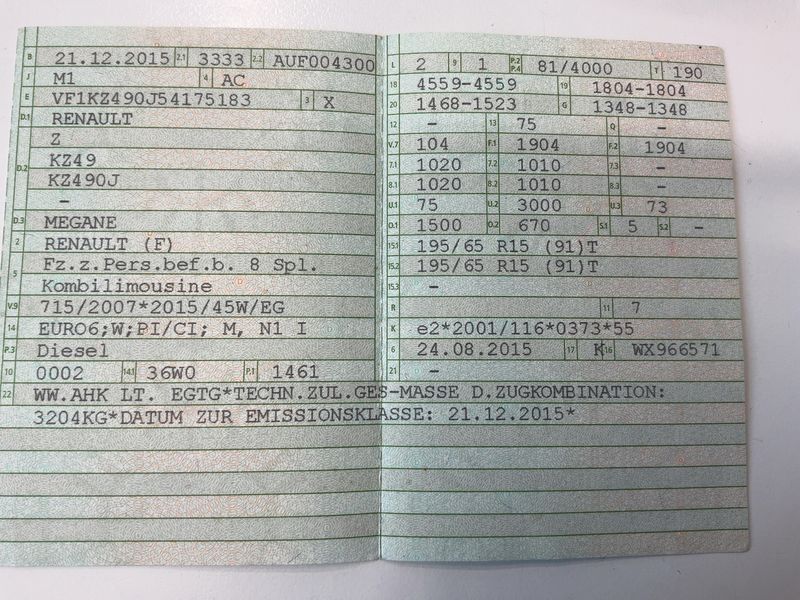 B 21.12.2015 2.1 3333 2.2 AUF004300
J M1 4 AC
E VF1KZ490J54175183 3 X
D.1 RENAULT
Z
KZ49
D.2 KZ490J
–
D.3 MEGANE
2 RENAULT (F)
5 Fz.z.Pers.bef.b. 8 Spl.
Kombilimousine
V.9 715/2007*2015/45W/EG
14 EURO6;W;PI/CI; M, N1 I
P.3 Diesel
10 0002 14.1 36W0 P.1 1461
L 2 9 1 P.2 P.4 81/4000 T 190
18 4559-4559 19 1804-1804
20 1468-1523 G 1348-1348
12 – 13 75 Q –
V.7 104 F.1 1904 F.2 1904
7.1 1020 7.2 1010 7.3 –
8.1 1020 8.2 1010 8.3 –
U.1 75 U.2 3000 U.3 73
O.1 1500 O.2 670 S.1 5 S.2 –
15.1 195/65 R15 (91)T
15.2 195/65 R15 (91)T
15.3 –
R 11 7
K e2*2001/116*0373*55
6 24.08.2015 17 K 16 WX966571
21 –
22 WW.AHK LT. EGTG*TECHN.ZUL.GES-MASSE D.ZUGKOMBINATION:
3204KG*DATUM ZUR EMISSIONSKLASSE: 21.12.2015*